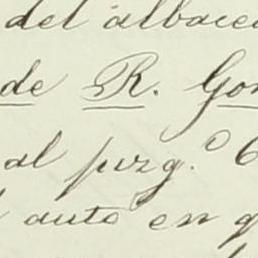 del albacea
de R. Gon
al juzg.º 6
auto en q